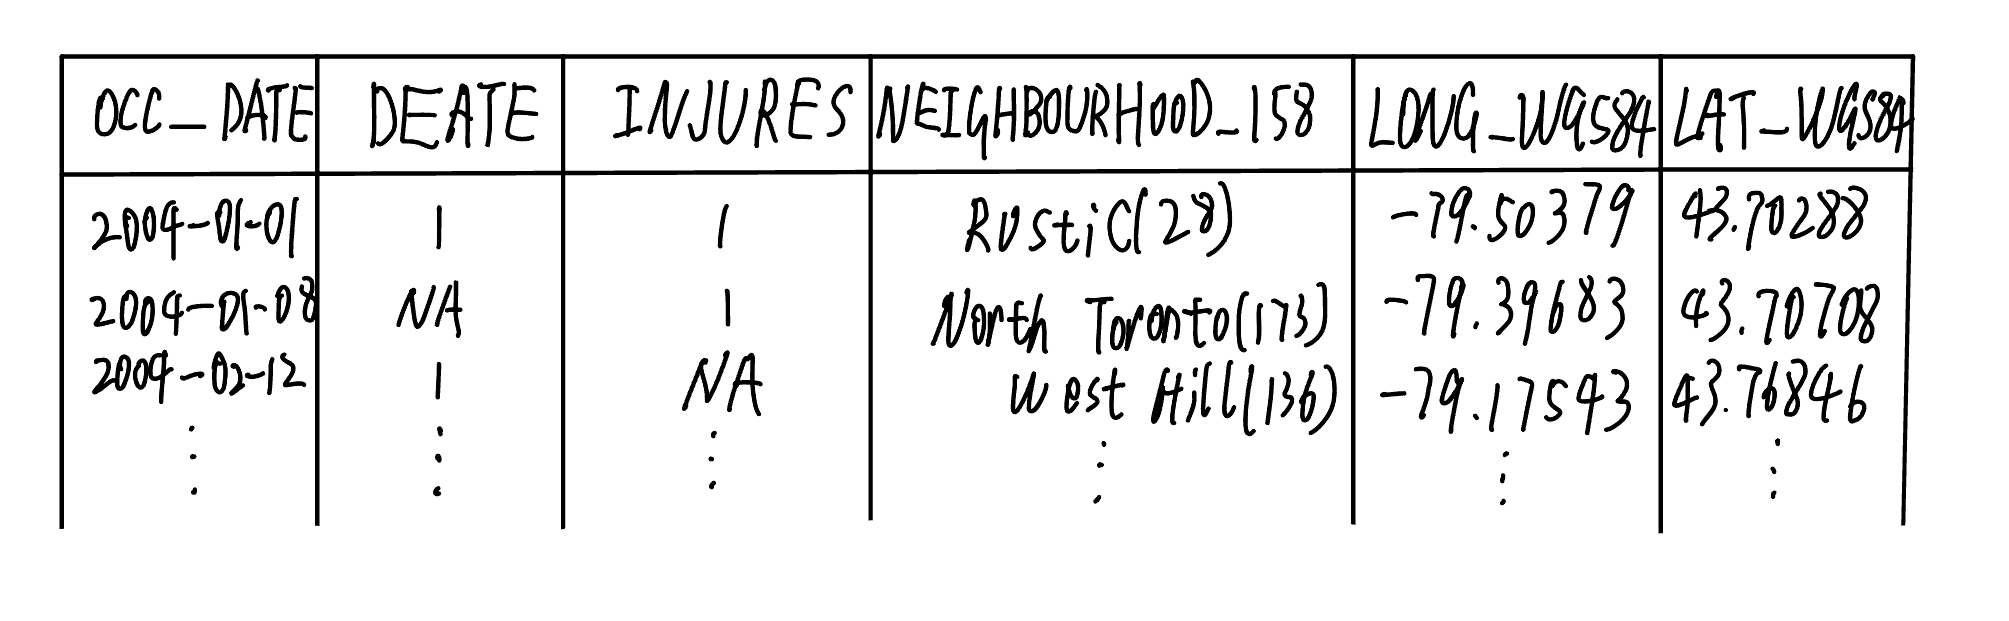 OCC_DATE DEATE INJURES NEIGHBOURHOOD_158 LONG_WGS84 LAT_WGS84
2004-01-01 1 1 Rustic(28) -79.50379 43.70288
2004-01-08 NA 1 North Toronto(173) -79.39683 43.70708
2004-02-12 1 NA West Hill(136) -79.17543 43.76846